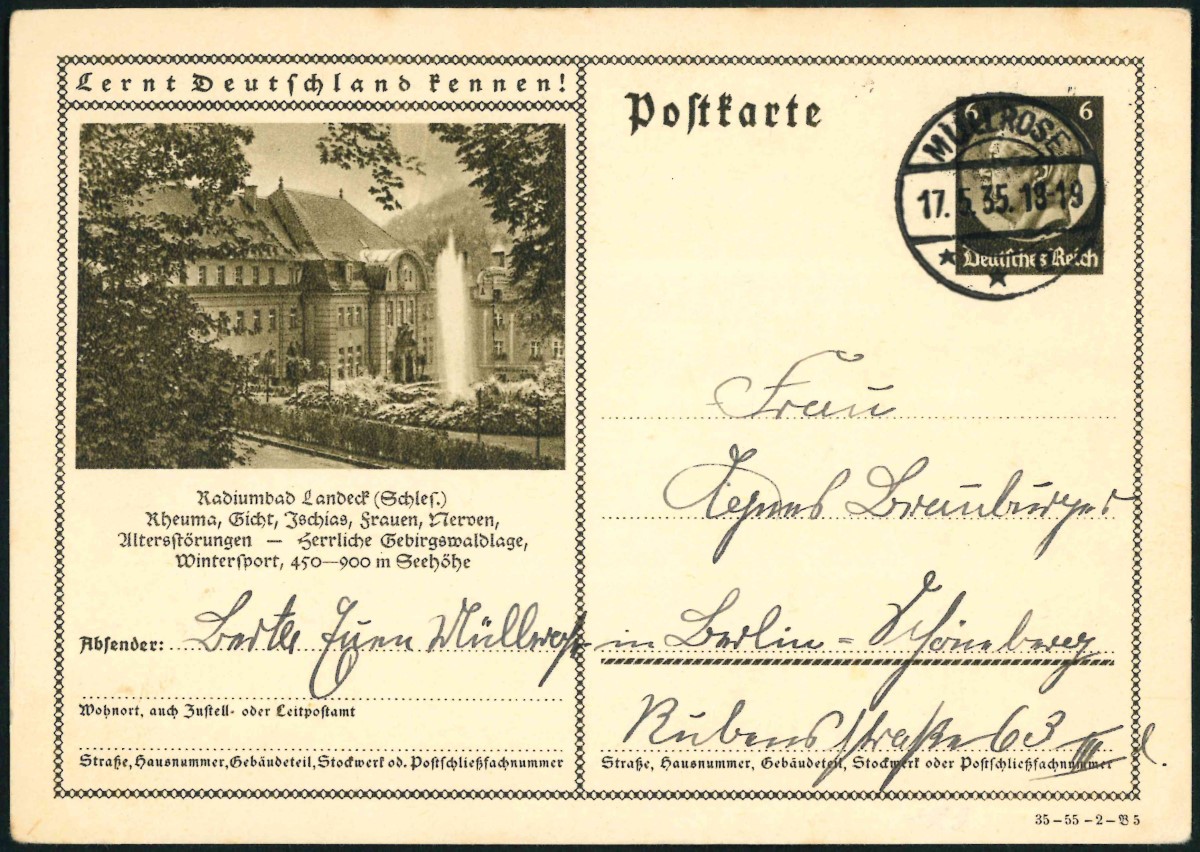 Lernt Deutschland kennen!
Radiumbad Landeck (Schles.)
Rheuma, Gicht, Ischias, Frauen, Nerven,
Altersstörungen — Herrliche Gebirgswaldlage,
Wintersport, 450—900 m Seehöhe
Absender: Müllrose
Wohnort, auch Zustell- oder Leitpostamt
Straße, Hausnummer, Gebäudeteil, Stockwerk od. Postschließfachnummer
Postkarte
6 6
MÜLLROSE
17.5.35.18-19
Deutsches Reich
Frau
Agnes Brauburger
in Berlin-Schöneberg
Rubensstraße 63 III l.
Straße, Hausnummer, Gebäudeteil, Stockwerk oder Postschließfachnummer
35-55-2-B 5